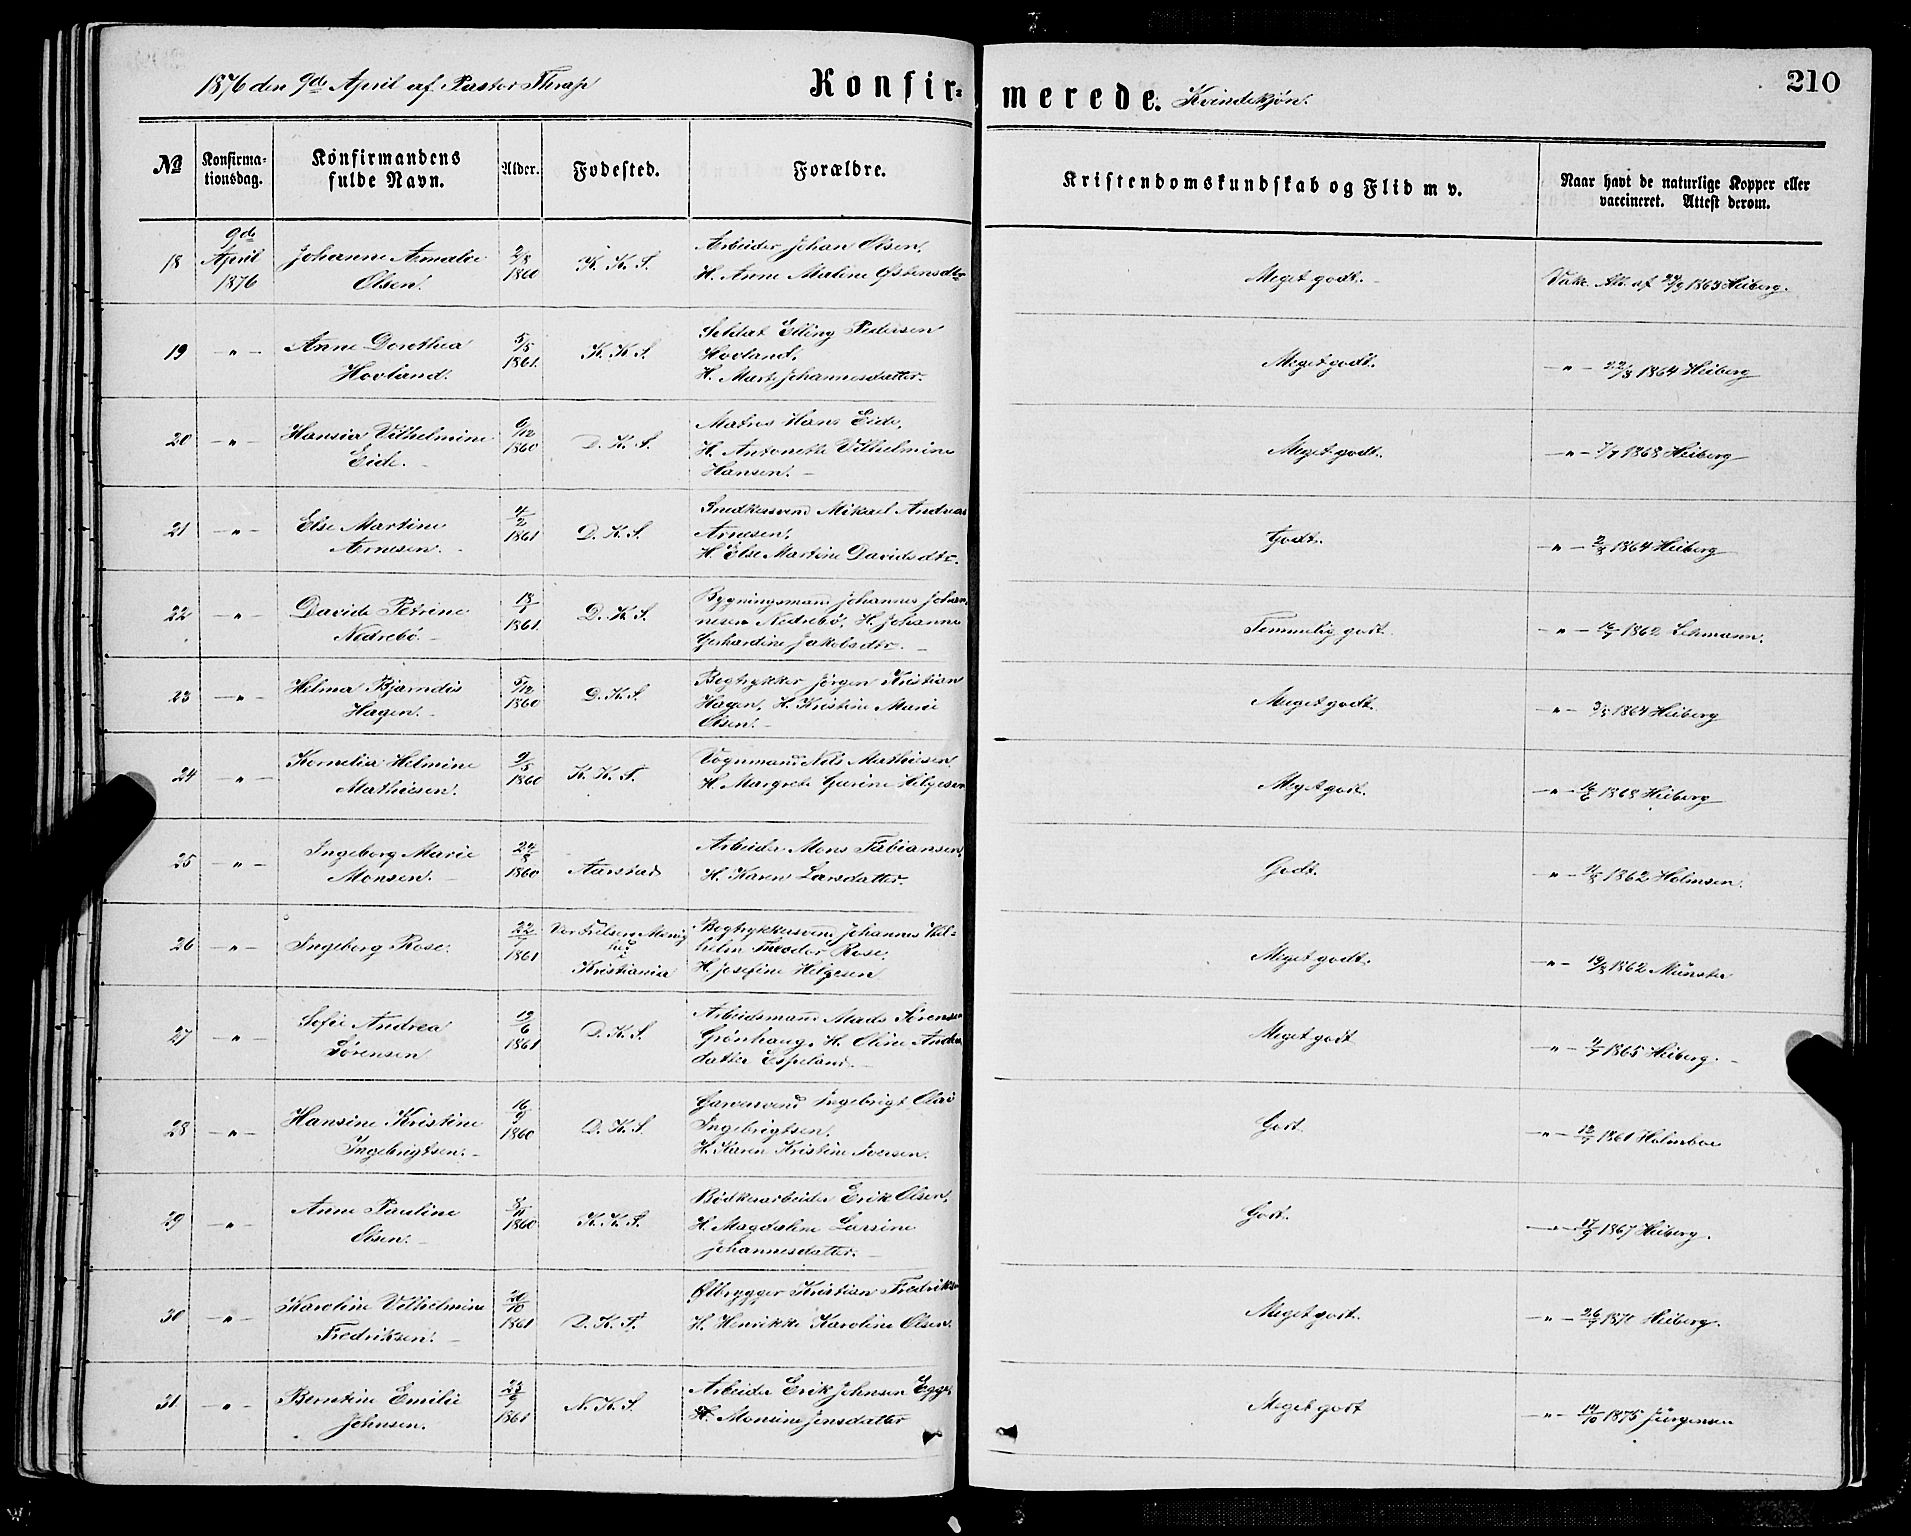 1876 den 9de April af Pastor Thrap
Konfir-
merede. Kvindekjøn.
210
No
Konfirma-
tionsdag.
Konfirmandens
fulde Navn.
Alder.
Fødested.
Forældre.
Kristendomskundskab og Flid m v.
Naar havt de naturlige Kopper eller
vaccineret. Attest derom.
18 9de April 1876 Johanne Amalie Olsen. 2/8 1860 K. K. S. Arbeider Johan Olsen,
H. Anne Maline Østensdtr
Meget godt. Vakc. Att. af 24/9 1863 Heiberg.
19 -„- Anne Dorothea Hovland. 5/5 1861. K. K. S. Soldat Elling Pedersen
Hovland,
H. Marte Johannesdatter.
Meget godt. -„- 22/8 1864 Heiberg
20 -„- Hansia Vilhelmine Eide. 6/12 1860 D. K. S. Matros Hans Eide,
H. Antonette Vilhelmine
Hansen.
Meget godt. -„- 7/7 1868 Heiberg
21 -„- Else Martine Arnesen. 4/2 1861 D. K. S. Snedkersvend Mikael Andreas
Arnesen,
H. Else Martine Davidsdtr.
Godt. -„- 2/8 1864 Heiberg
22 -„- Davida Petrine Nedrebö. 18/1 1861. D. K. S. Bygningsmand Johannes Johan-
nesen Nedrebö, H. Johanne
Gerhardine Jakobsdtr.
Temmelig godt. -„- 1862 Lehmann.
23 -„- Helma Bjarndis Hagen. 5/12 1860 D. K. S. Bogtrykker Jörgen Kristian
Hagen, H. Kristine Marie
Olsen.
Meget godt. -„- 1864 Heiberg
24 -„- Kornelia Helmine Mathiesen. 9/5 1860 K. K. S. Vognmand Nils Mathiesen
H. Margrete Gurine Helgesen
Meget godt. -„- 1868 Heiberg
25 -„- Ingeborg Marie Monsen. 24/8 1860 Aarstad Arbeider Mons Fabiansen,
H. Karen Larsdatter.
Godt. -„- 1862 Holmsen.
26 -„- Ingeborg Rose. 22/1 1861 Vor Frelsers Menig
hed
Kristiania Bogtrykkersvend Johannes Vil-
helm Theodor Rose,
H. Josefine Helgesen
Meget godt. -„- 19/8 1862 Münster
27 -„- Sofie Andrea Sörensen 19/6 1861 D. K. S. Arbeidsmand Mads Sörensen
Grönhaug, H. Oline Anders
datter Espeland.
Meget godt -„- 1865 Heiberg.
28 -„- Hansine Kristine Ingebrigtsen. 16/9 1860 D. K. S. Garversvend Ingebrigt Olai
Ingebrigtsen,
H. Karen Kristine Iversen.
Godt. -„- 1861 Holmboe
29 -„- Anne Pauline Olsen. 8/11 1860 K. K. S. Bödkerarbeider Erik Olsen,
H. Magdalene Larsine
Johannesdatter.
Godt. -„- 17/9 1867 Heiberg.
30 -„- Karoline Vilhelmine Fredriksen. 20/10 1861 D. K. S. Ølbrygger Kristian Fredriksen
H. Henrikke Karoline Olsen.
Meget godt. -„- 1871 Heiberg.
31 -„- Berntine Emilie Johnsen. 1861 N. K. S. Arbeider Erik Johnsen Egge,
H. Monsine Jensdatter
Meget godt -„- 14/10 1875 Jürgensen